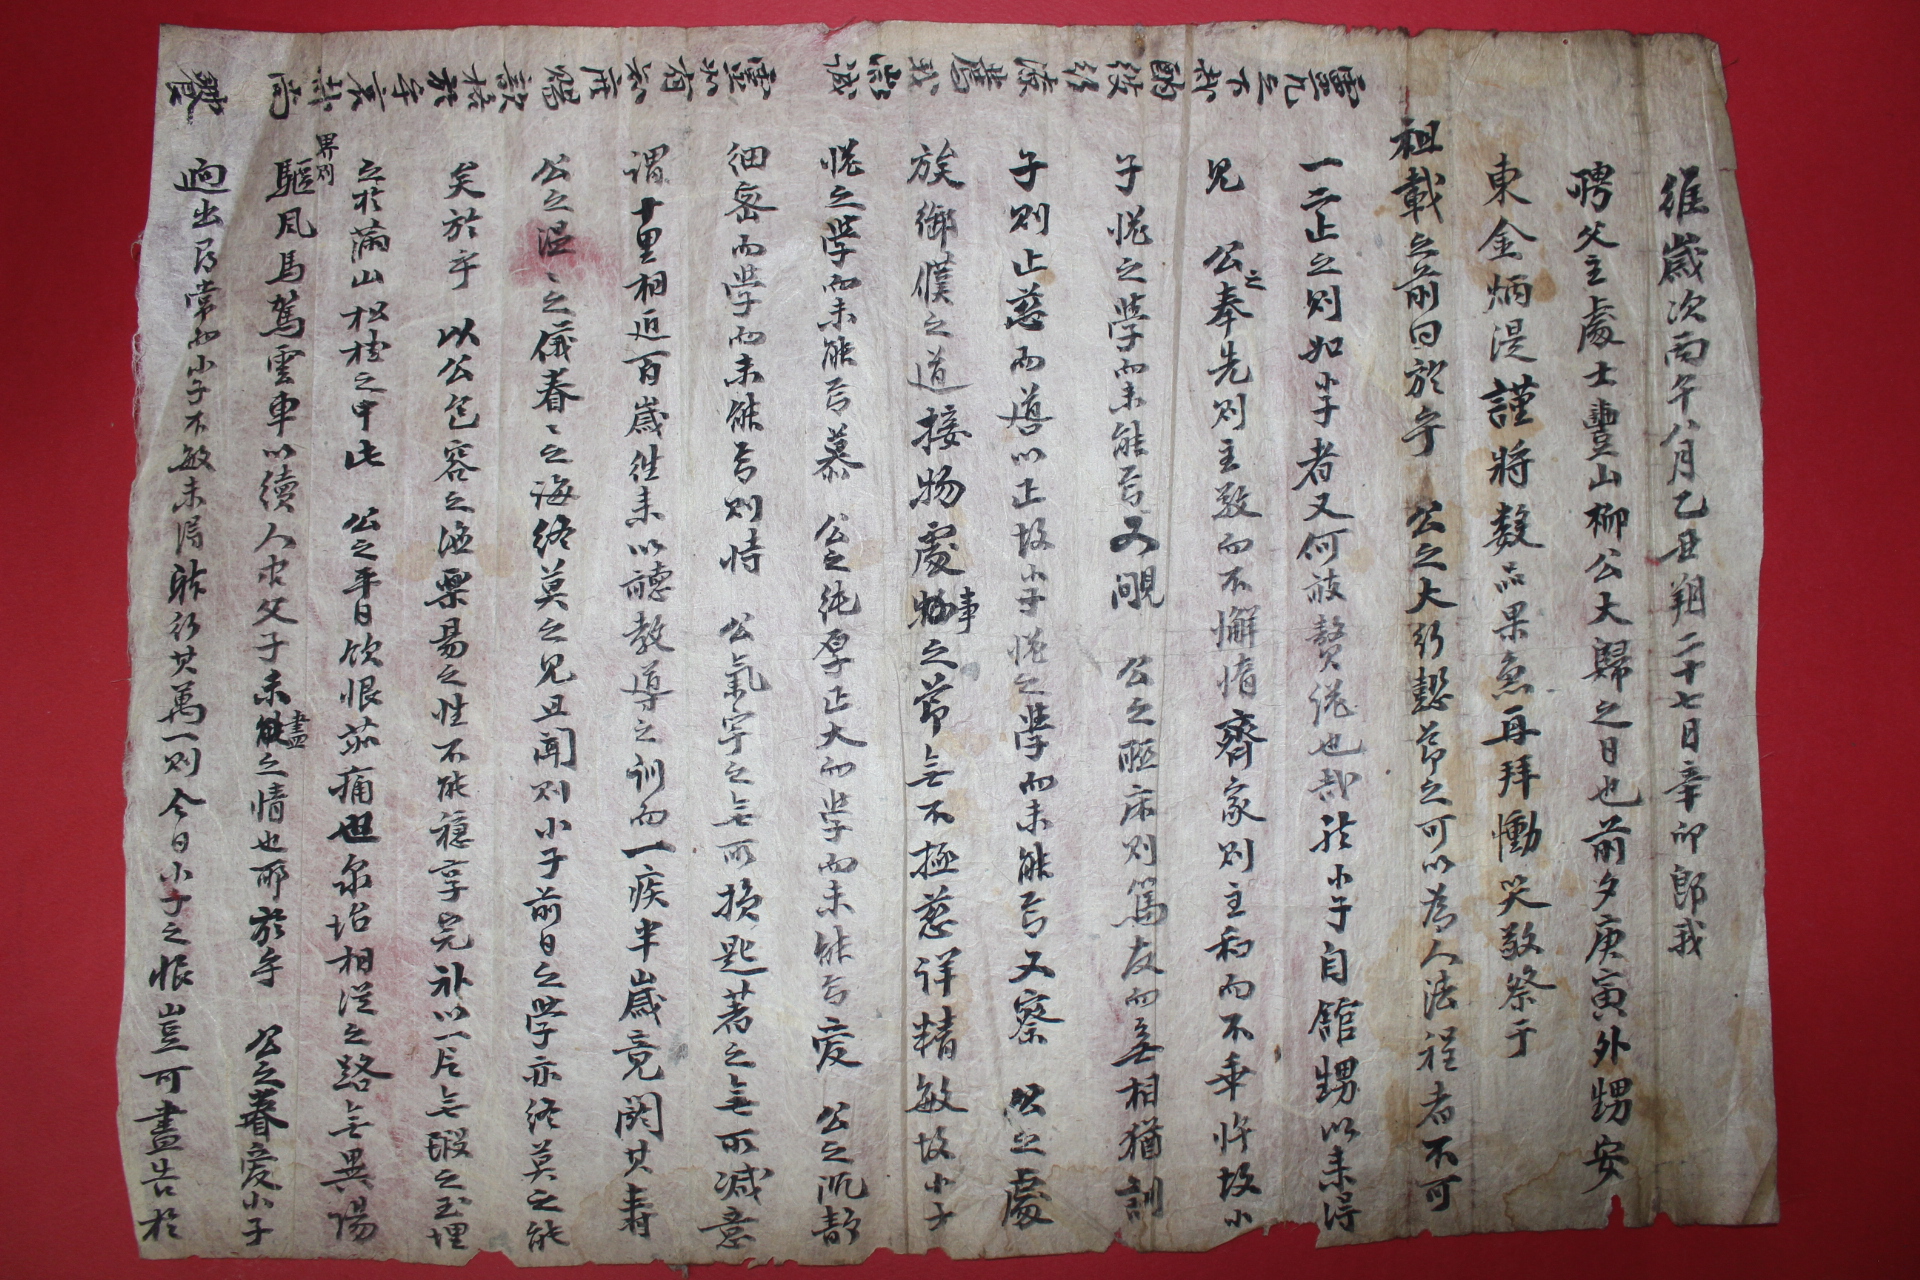 維歲次丙午八月乙丑朔二十七日辛卯郎我
聘父主處士豊山柳公大歸之日也前夕庚寅外甥安
東金炳湜謹將數品果魚再拜慟哭敬祭于
祖載之前曰於乎 公之大行懿節之可以爲人法程者不可
一二止之則如小子者又何敢贅後也哉然小子自館甥以來得
見 公之奉先則主敬而不懈惰齊家則主和而不乖忤故小
子悅之學而未能焉又覸 公之 床則篤友而無相猶訓
子則止慈而導以正故小子悅之學而未能焉又察 公之處
族御僕之道接物處事之節無不極慈詳精敏故小子
悅之學而未能焉慕 公之純厚正大而學而未能焉愛 公之沉靜
細密而學而未能焉則恃 公氣宇之無所損匙著之無所減意
謂十里相近百歲往來以聽敎導之訓而一疾半歲竟閼其壽
公之溫〻之儀春〻之海終莫之見且聞則小子前日之學亦終莫之能
矣於乎 以公包容之 稟易之性不能穩享 以一片無瑕之玉埋
之於滿山松桂之中此 公之平日飮恨茹痛也泉坮相從之路無異陽
界則
驅風馬駕雲車以續人 父子未盡之情也耶於乎 公之眷愛小子
逈出尋常而小子不敏未得 行其萬一則今日小子之恨豈可盡告於
靈几之
不

酹
綴

凉
薦
我
尙
誠
靈
如
有
知
庶
賜
歆
格
於乎
哀哉
尙
饗